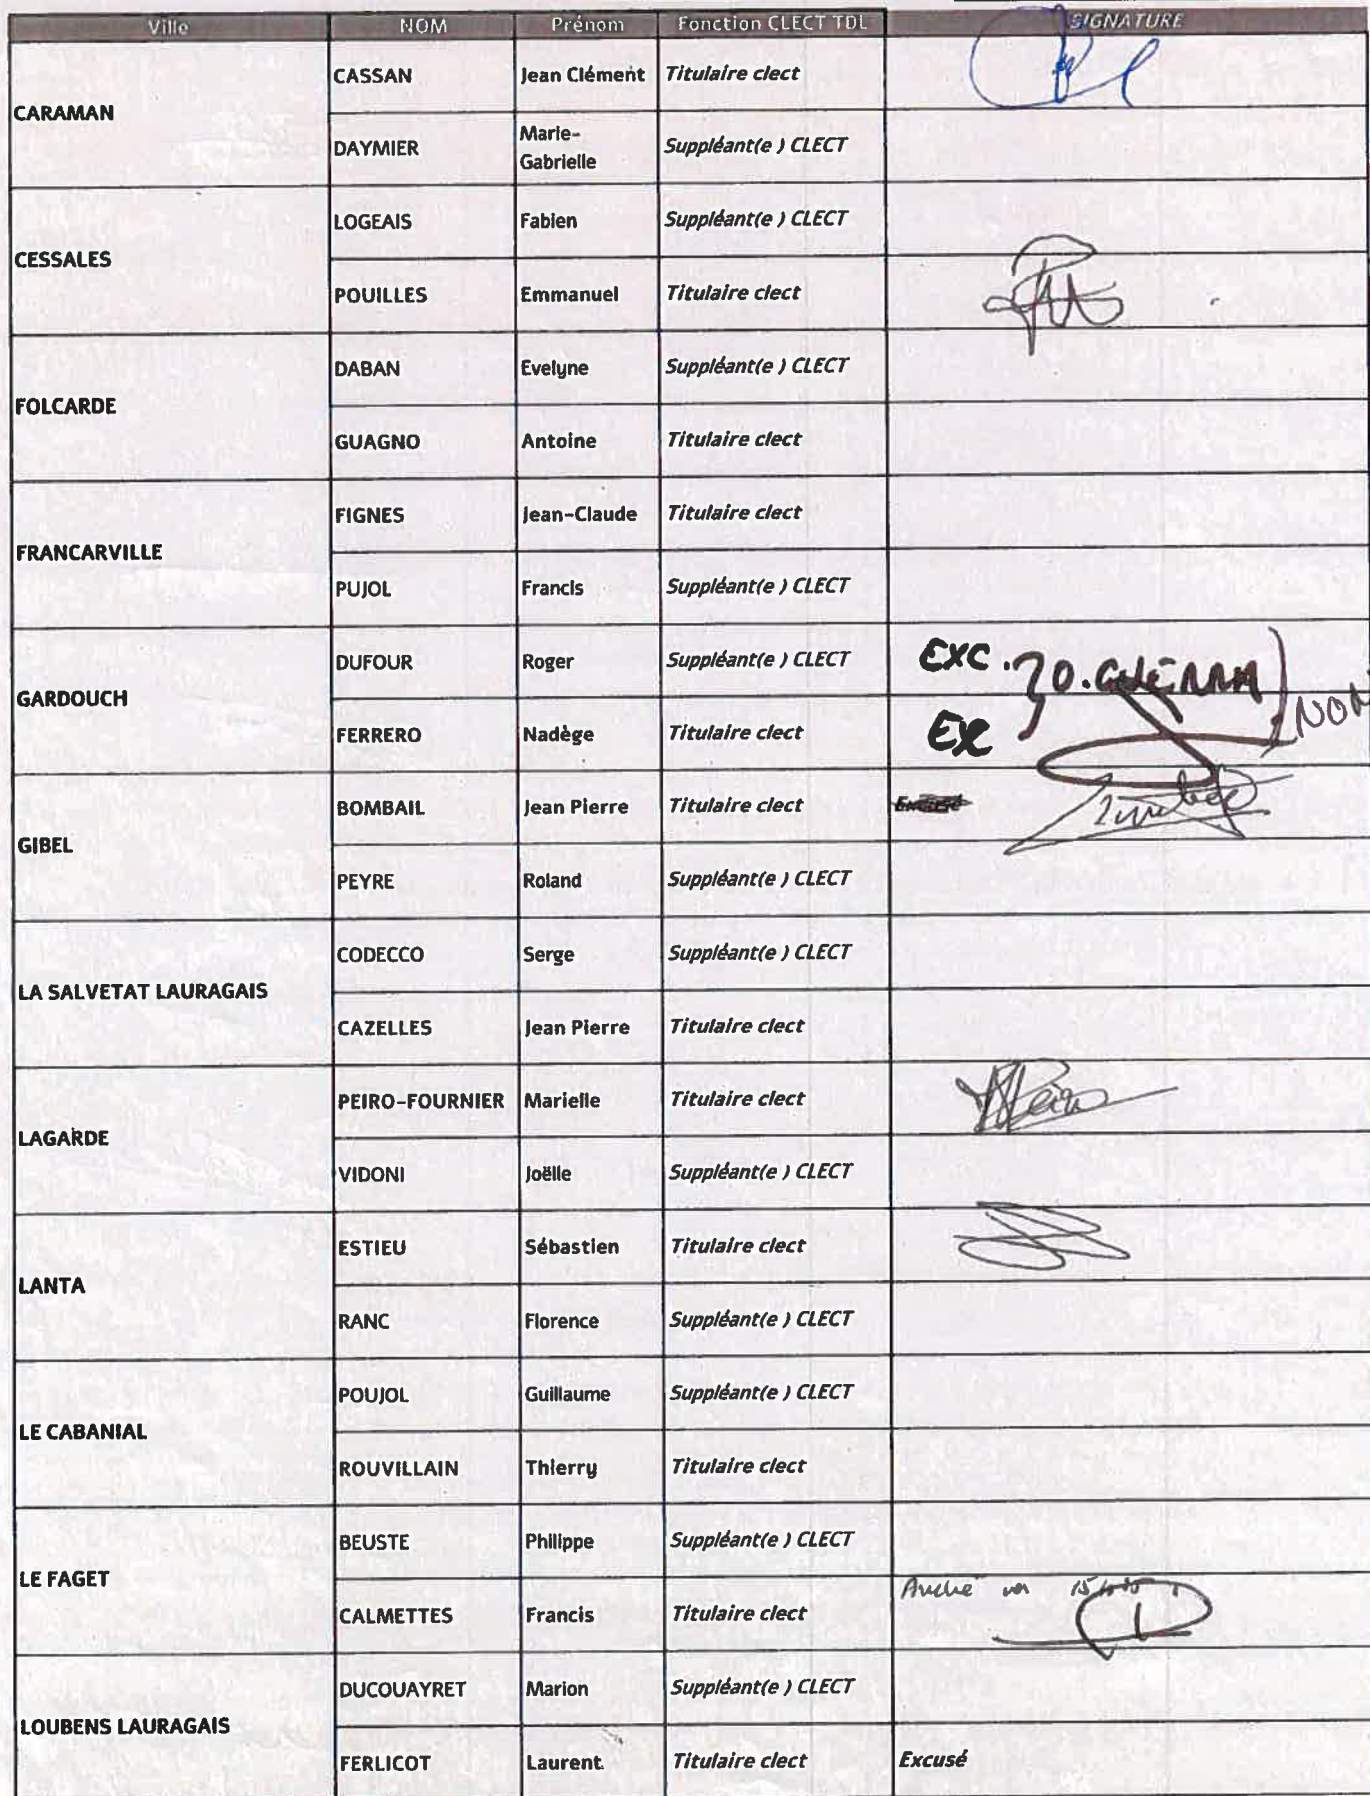 Ville NOM Prénom Fonction CLECT TDL SIGNATURE
CARAMAN
CASSAN Jean Clément Titulaire clect
DAYMIER Marie-
Gabrielle Suppléant(e ) CLECT
CESSALES
LOGEAIS Fabien Suppléant(e ) CLECT
POUILLES Emmanuel Titulaire clect
FOLCARDE
DABAN Evelyne Suppléant(e ) CLECT
GUAGNO Antoine Titulaire clect
FRANCARVILLE
FIGNES Jean-Claude Titulaire clect
PUJOL Francis Suppléant(e ) CLECT
GARDOUCH
DUFOUR Roger Suppléant(e ) CLECT EXC.
FERRERO Nadège Titulaire clect EX NON
GIBEL
BOMBAIL Jean Pierre Titulaire clect Excusé
PEYRE Roland Suppléant(e ) CLECT
LA SALVETAT LAURAGAIS
CODECCO Serge Suppléant(e ) CLECT
CAZELLES Jean Pierre Titulaire clect
LAGARDE
PEIRO-FOURNIER Marielle Titulaire clect
VIDONI Joëlle Suppléant(e ) CLECT
LANTA
ESTIEU Sébastien Titulaire clect
RANC Florence Suppléant(e ) CLECT
LE CABANIAL
POUJOL Guillaume Suppléant(e ) CLECT
ROUVILLAIN Thierry Titulaire clect
LE FAGET
BEUSTE Philippe Suppléant(e ) CLECT
CALMETTES Francis Titulaire clect
LOUBENS LAURAGAIS
DUCOUAYRET Marion Suppléant(e ) CLECT
FERLICOT Laurent Titulaire clect Excusé